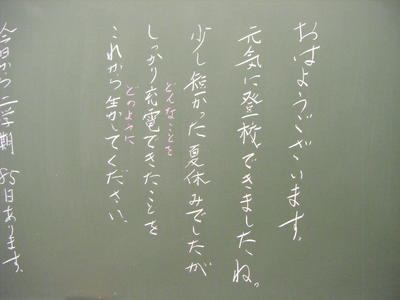 おはようございます。
元気に登校できましたね。
少し短かった夏休みでしたが
どんなことを
しっかり充電できたことを
どのように
これから生かしてください。
今日から二学期 85日あります。